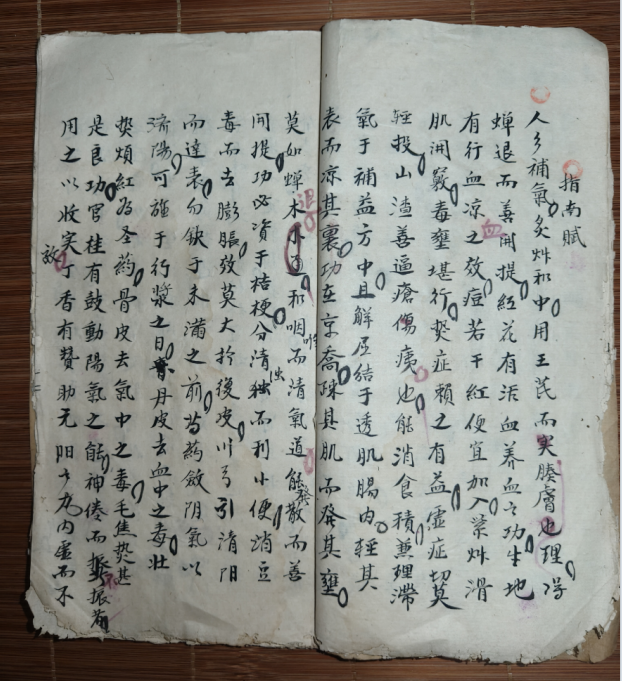 指南賦
人乡補氣炙炒和中用王芪而实腠膚也理㝵
蟬退而善開提紅花有活血养血之功生地
有行血凉之效痘若干紅便宜加入紫炒滑
血
肌開竅毒壅堪行熱症賴之有益虛症切莫
輕投山渣善逼瘡傷痍也能消食積兼理滯
氣于補益方中且解尼結于透肌腸内輕其
表而凉其裏功在京喬疎其肌而發其壅
莫如蟬木小通和咽而清氣道能散而善
退
開提功必资于桔梗分清独而利小便消豆
毒而去膨脹效莫大於復皮川弓引清阳
而達表勿缺于未滿之前芍药歛阴氣以
濟陽可施于行漿之日丹皮去血中之毒壮
熱煩紅为圣药骨皮去氣中之毒毛焦熱甚
是良功官桂有鼓動陽氣之能神倦而振
用之以收实丁香有赞助元阳之内虛而不